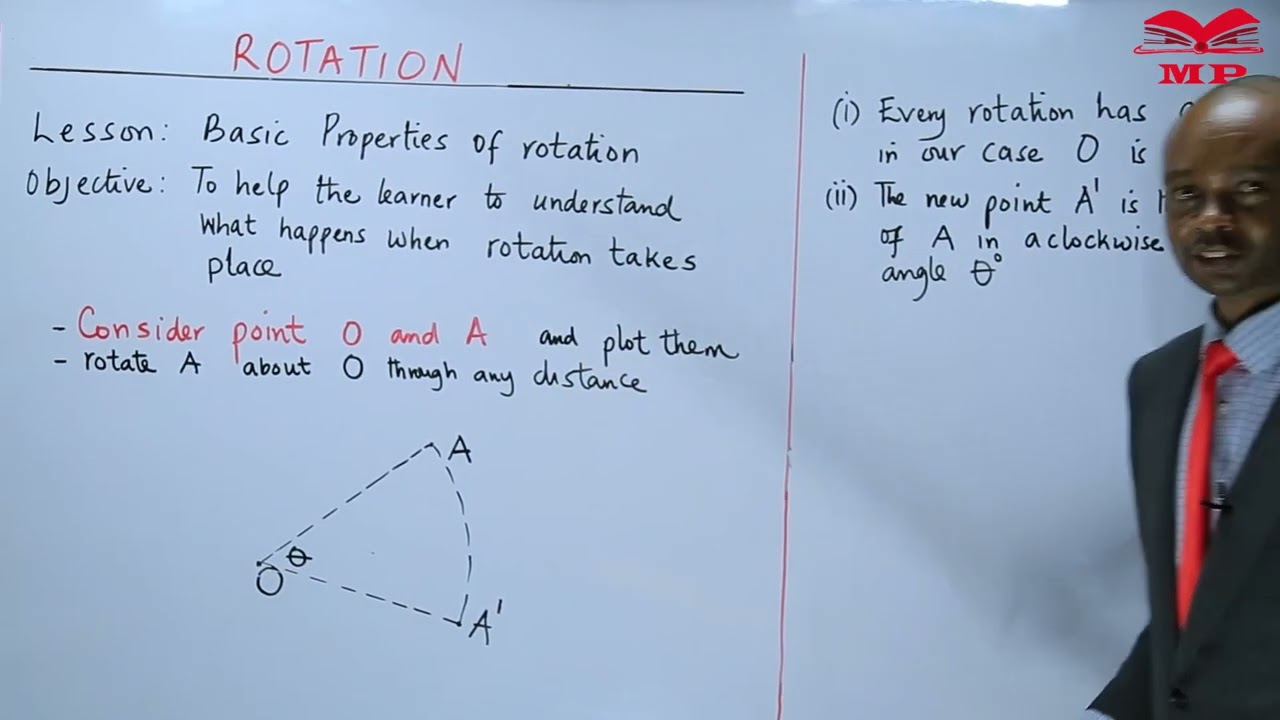 MP
ROTATION
Lesson: Basic Properties of rotation
Objective: To help the learner to understand
what happens when rotation takes
place
- Consider point O and A and plot them
- rotate A about O through any distance
A
θ
O
A'
(i) Every rotation has
in our case O is
(ii) The new point A' is
of A in a clockwise
angle θ°